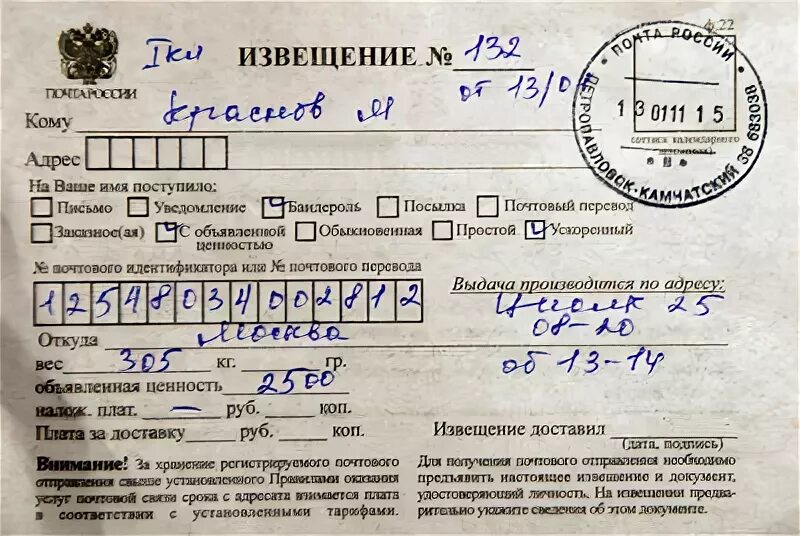 ф.22
Iкл ИЗВЕЩЕНИЕ № 132
ПОЧТА РОССИИ
от 13/0
Кому Краснов М
Адрес
ПОЧТА РОССИИ
ПЕТРОПАВЛОВСК-КАМЧАТСКИЙ 38 683038
13 0111 15
На Ваше имя поступило:
Письмо Уведомление Бандероль Посылка Почтовый перевод
Заказное(ая) С объявленной ценностью Обыкновенная Простой Ускоренный
№ почтового идентификатора или № почтового перевода
12548034002812
Выдача производится по адресу:
Циолк 25
08-20
об 13-14
Откуда Москва
вес 305 кг. гр.
объявленная ценность 2500
налож. плат. — руб. коп.
Плата за доставку руб. коп.
Извещение доставил
(дата, подпись)
Внимание! За хранение регистрируемого почтового
отправления свыше установленного Правилами оказания
услуг почтовой связи срока с адресата взимается плата
в соответствии с установленными тарифами.
Для получения почтового отправления необходимо
предъявить настоящее извещение и документ,
удостоверяющий личность. На извещении предва-
рительно укажите сведения об этом документе.